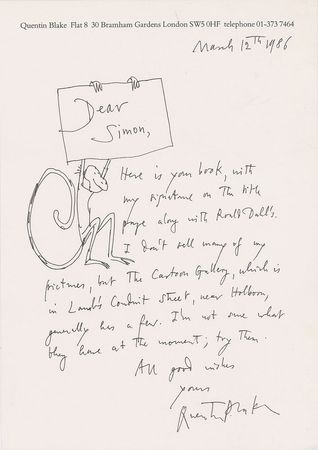 Quentin Blake Flat 8 30 Bramham Gardens London SW5 0HF telephone 01-373 7464
March 12TH 1986
Dear
Simon,
Here is your book, with
my signature on the title
page along with Roald Dahl's.
I don't sell many of my
pictures, but The Cartoon Gallery, which is
in Lamb's Conduit Street, near Holborn,
generally has a few. I'm not sure what
they have at the moment; try them.
All good wishes
yours
Quentin Blake